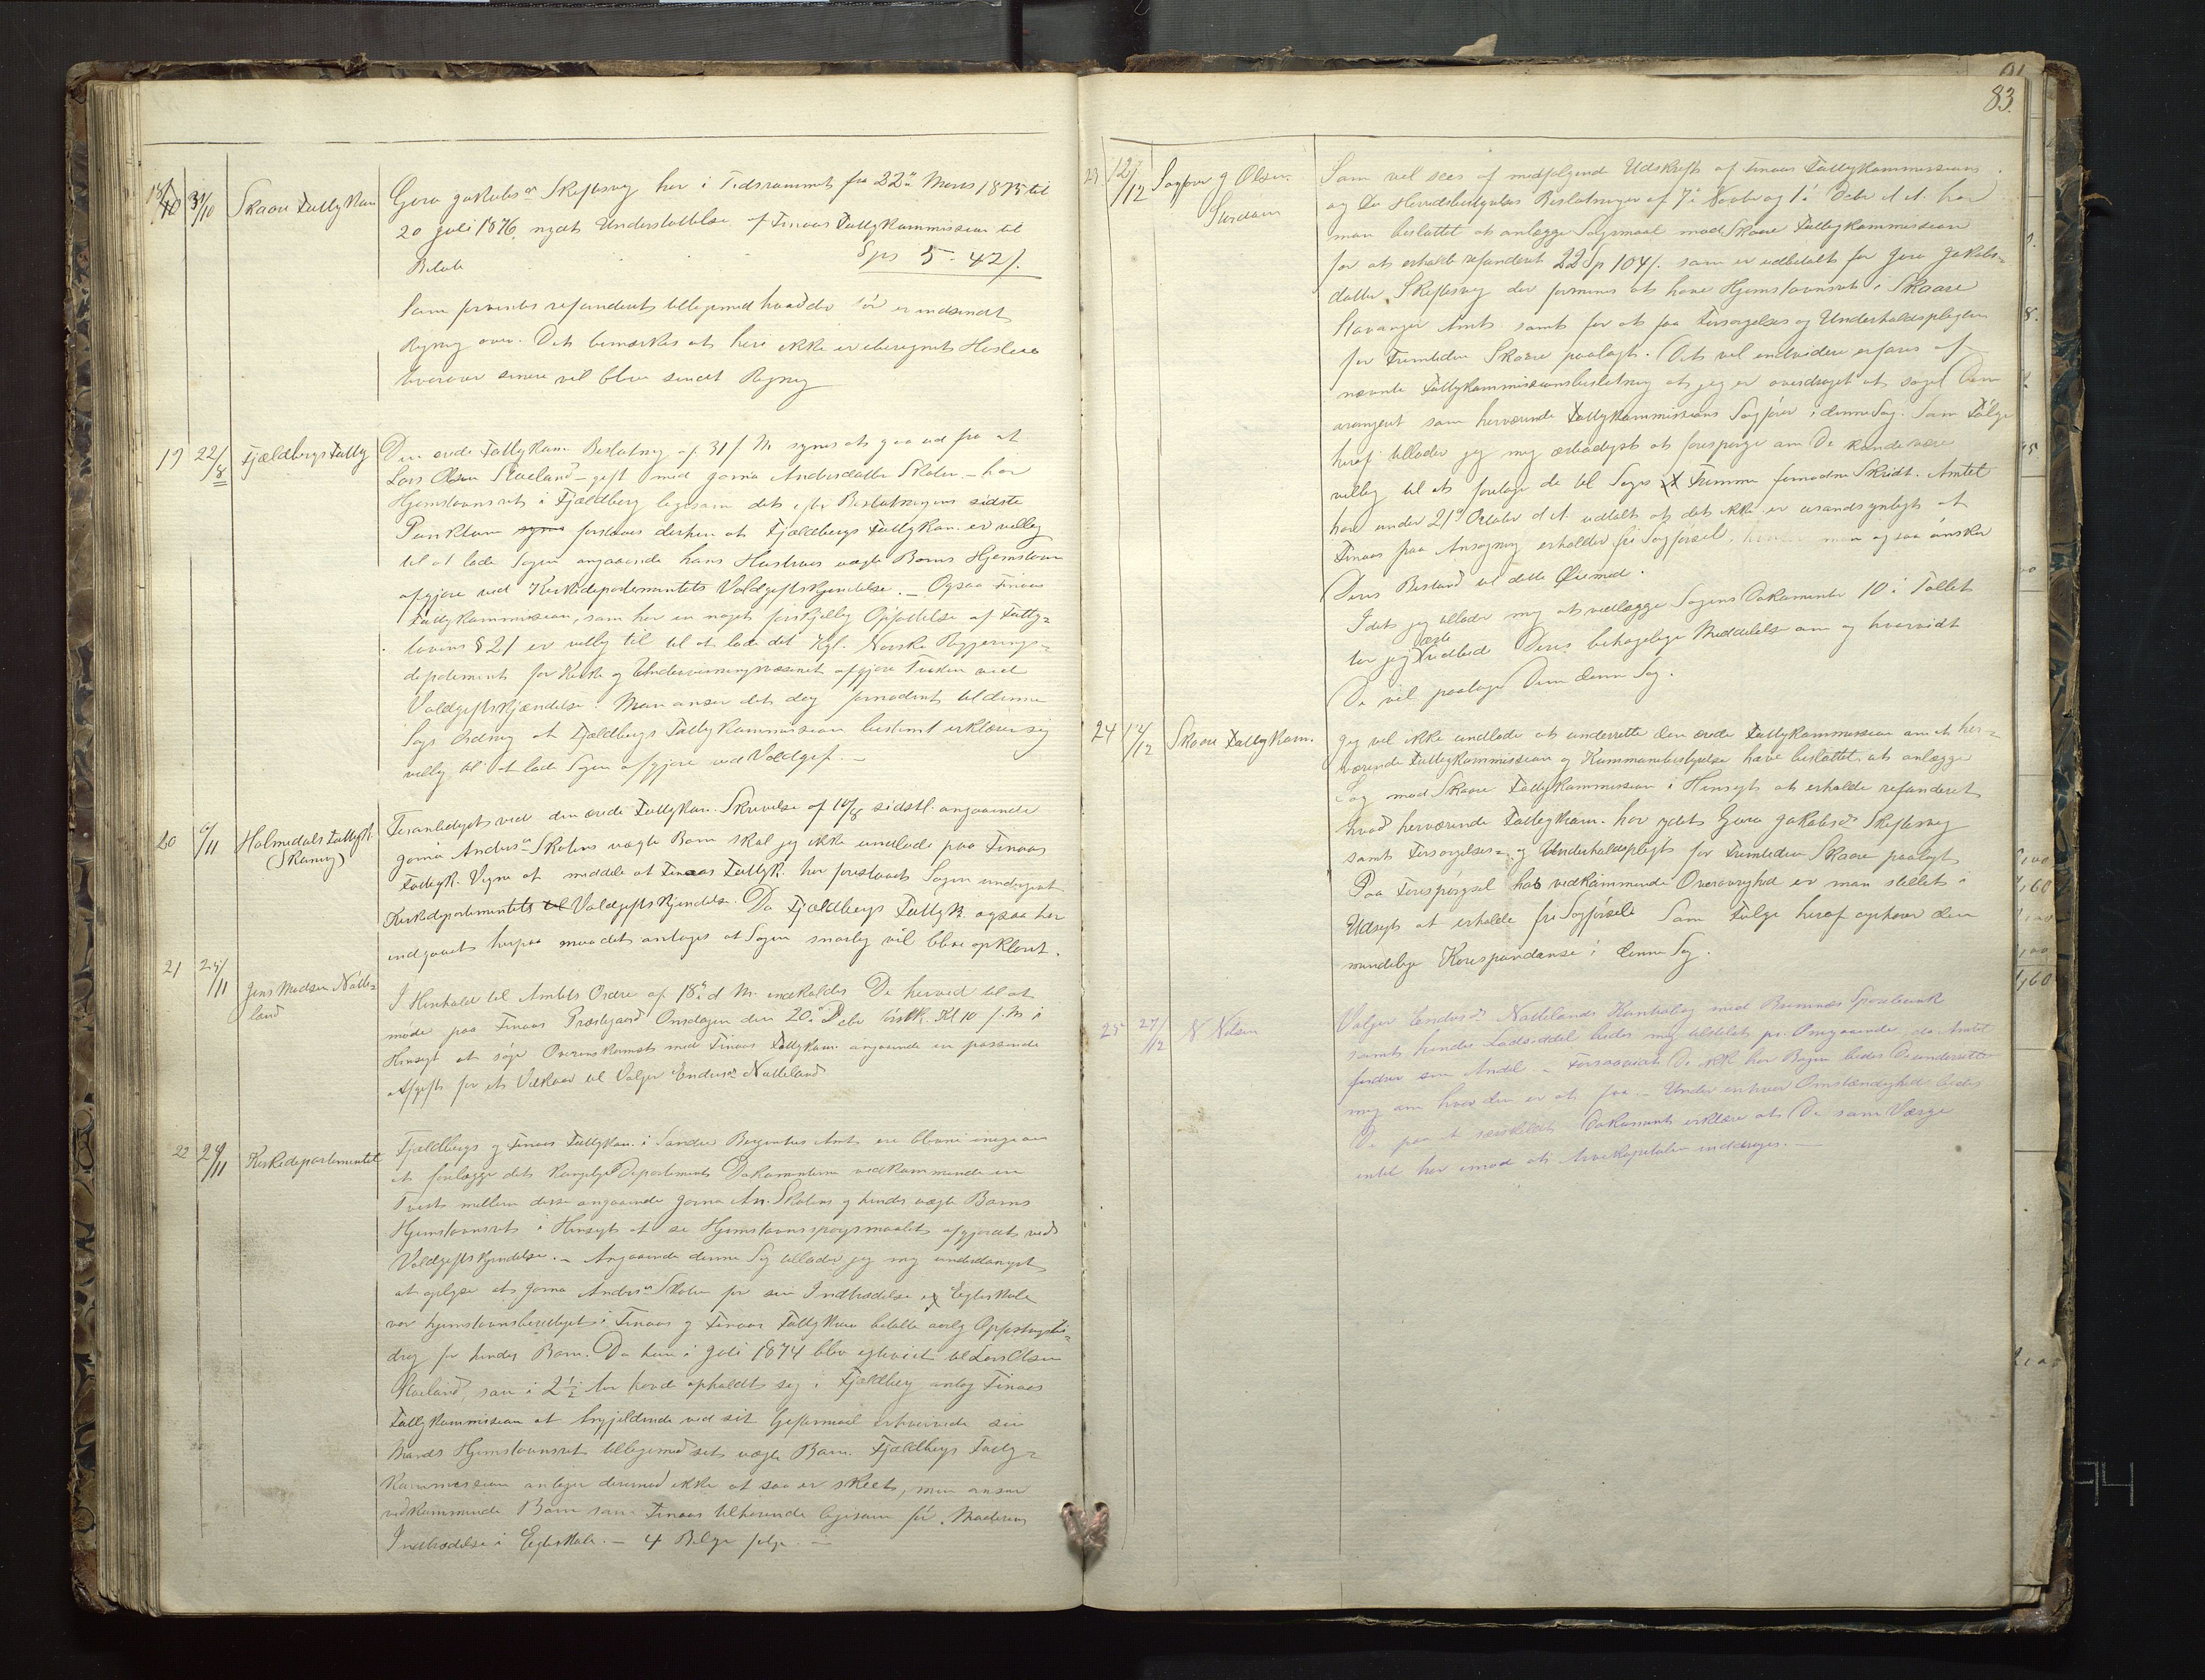 18/10 31/10 Skaare Fattigkom
Guro Jakobsdr Skeftesvig har i Tidsrummet fra 22de Marts 1875 til
20 Juli 1876, nydt Understøttelse af Finaas Fattigkommission til
Beløb Sps 5 - 42 s.
som forventes refunderet tilligemed hvad der før er indsendt
Regning over. Det bemærkes at heri ikke er iberegnet
hvorover senere vil blive sendt Regning
19 22/8 Fjeldbergs Fattig
Den ærede Fattigkom Beslutning af 31 f M synes at gaa ud fra at
Lars Olsen - gift med Gorna Andersdatter Skolen - har
Hjemstavnsret i Fjeldberg ligesom det efter Beslutningens sidste
Punktum forstaaes derhen at Fjeldbergs Fattigkom. er villig
til at lade Sagen angaaende hans Hustrues uægte Barns Hjemstavn
afgjøre ved Kirkedepartementets Voldgiftskjendelse. - Ogsaa Finaas
Fattigkommission, som har en noget forskjellig Opfattelse af Fattig-
lovens § 21 er villig til at lade det Kgl. Norske Regjerings-
departement for Kirke og Undervisningsvæsenet afgjøre Tvisten ved
Voldgiftskjændelse. Man anser det dog fornødent til denne
Sags Ordning at Fjeldbergs Fattigkommission bestemt erklærer sig
villig til at lade Sagen afgjøre ved Voldgift. -
20 6/11 Holmedals Fattigk.
(Skaanevig)
Foranlediget ved den ærede Fattigkom. Skrivelse af 14/8 sidstl. angaaende
Gorna Andersdr Skolens uægte Barn skal jeg ikke undlade paa Finaas
Fattigk. Vegne at meddele at Finaas Fattigk. har foreslaaet Sagen undergivet
Kirkedepartementets Voldgiftskjendelse. Da Fjeldbergs Fattigk. ogsaa har
indgaaet herpaa maa det antages at Sagen snarlig vil blive opklaret.
21 25/11 Jens Madsen Nøtte-
land
I Henhold til Amtets Ordre af 18de d M. indkaldes De herved til at
møde paa Finaas Præstegaard Onsdagen den 20de Debr førstk. Kl 10 f. M i
Hensigt at søge Overenskomst med Finaas Fattigkom. angaaende en passende
Afgift for et Vilkaar til Valger Endresdr Nøtteland
22 29/11 Kirkedepartementet
Fjeldbergs og Finaas Fattigkom. i Søndre Bergenhus Amt ere blevne enige om
at forelægge det kongelige Departement Dokumenterne vedkommende en
Tvist mellem disse angaaende Gorna An. Skolens og hendes uægte Barns
Hjemstavnsret i Hensigt at se Hjemstavnsspørgsmaalet afgjort ved
Voldgiftskjendelse. - Angaaende denne Sag tillader jeg mig underdanigst
at oplyse at Gorna Andersdr Skolen før sin Indtrædelse i Egteskab
var hjemstavnsberettiget i Finaas og Finaas Fattigkom betalte aarlig Opfostringsbi-
drag for hendes Barn. Da hun i Juli 1874 blev egteviet til Lars Olsen
som i 2½ Aar havde opholdt sig i Fjeldberg antog Finaas
Fattigkommission at ved sit Giftermaal erhvervede sin
Mands Hjemstavnsret tilligemed sit uægte Barn. Fjeldbergs Fattig-
kommission antager derimod ikke at saa er skeet, men anser
vedkommende Barn som Finaas tilhørende ligesom før Moderens
Indtrædelse i Egteskab. - 4 Bilage følge. -
83.
23 12/12 Sagfører G Olsen
Som vil sees af medfølgende Udskrift af Finaas Fattigkommissions
og Herredsbestyrelses Beslutninger af 7de Novbr og 1ste Debr d. A. har
man besluttet at anlægge Søgsmaal mod Skaare Fattigkommission
for at erholde refunderet 22 Sp 104 s. som er udbetalt for Guro Jakobs-
datter Skeftesvig der formenes at have Hjemstavnsret i Skaare
Stavanger Amt samt for at faa Forsørgelses og Underholdspligten
for Fremtiden Skaare paalagt. Det vil endvidere erfares af
nævnte Fattigkommissionsbeslutning at jeg er overdraget at søge Dem
som herværende Fattigkommissions Sagfører i denne Sag. Som Følge
heraf tillader jeg mig ærbødigst at forespørge om De kunde være
villig til at foretage de til Sagens Fremme fornødne Skridt. Amtet
har under 21de Octobr d A. udtalt at det ikke er usandsynligt at
Finaas paa Ansøgning erholder fri Sagførsel, man ogsaa ønsker
Deres Bistand til dette Øiemed.
Idet jeg tillader mig at vedlægge Sagens Dokumenter 10 i Tallet
tør jeg udbede Deres behagelige Meddelelse om og hvorvidt
De vil paatage Dem denne Sag.
24 14/12 Skaare Fattigkom.
Jeg vil ikke undlade at underrette den ærede Fattigkommission om at her-
værende Fattigkommission og Kommunebestyrelse have besluttet at anlægge
Sag mod Skaare Fattigkommission i Hensigt at erholde refunderet
hvad herværende Fattigkom. har ydet Guro Jakobsdr Skeftesvig
samt Forsørgelses- og Underholdspligt for Fremtiden Skaare paalagt
Paa Forespørgsel hos vedkommende Overøvrighed er man stillet i
Udsigt at erholde fri Sagførsel. Som Følge heraf ophører den
mindelige Korespondanse i denne Sag.
25 27/12 N Nilsen
Valger Endresdr Nøttelands Kontrabog med Bømnæs Sparebank
samt hendes Lodseddel bedes mig tilstillet pr. Omgaaende, da Amtet
fordrer sin Andel - Forsaavidt De ikke har Bogen bedes De underrette
mig om hvor den er at faa. - Under enhver Omstændighed bedes
De paa et særskilt Dokument erklære at De som Værge
intet har imod at Arvekapitalen inddrages. -
94